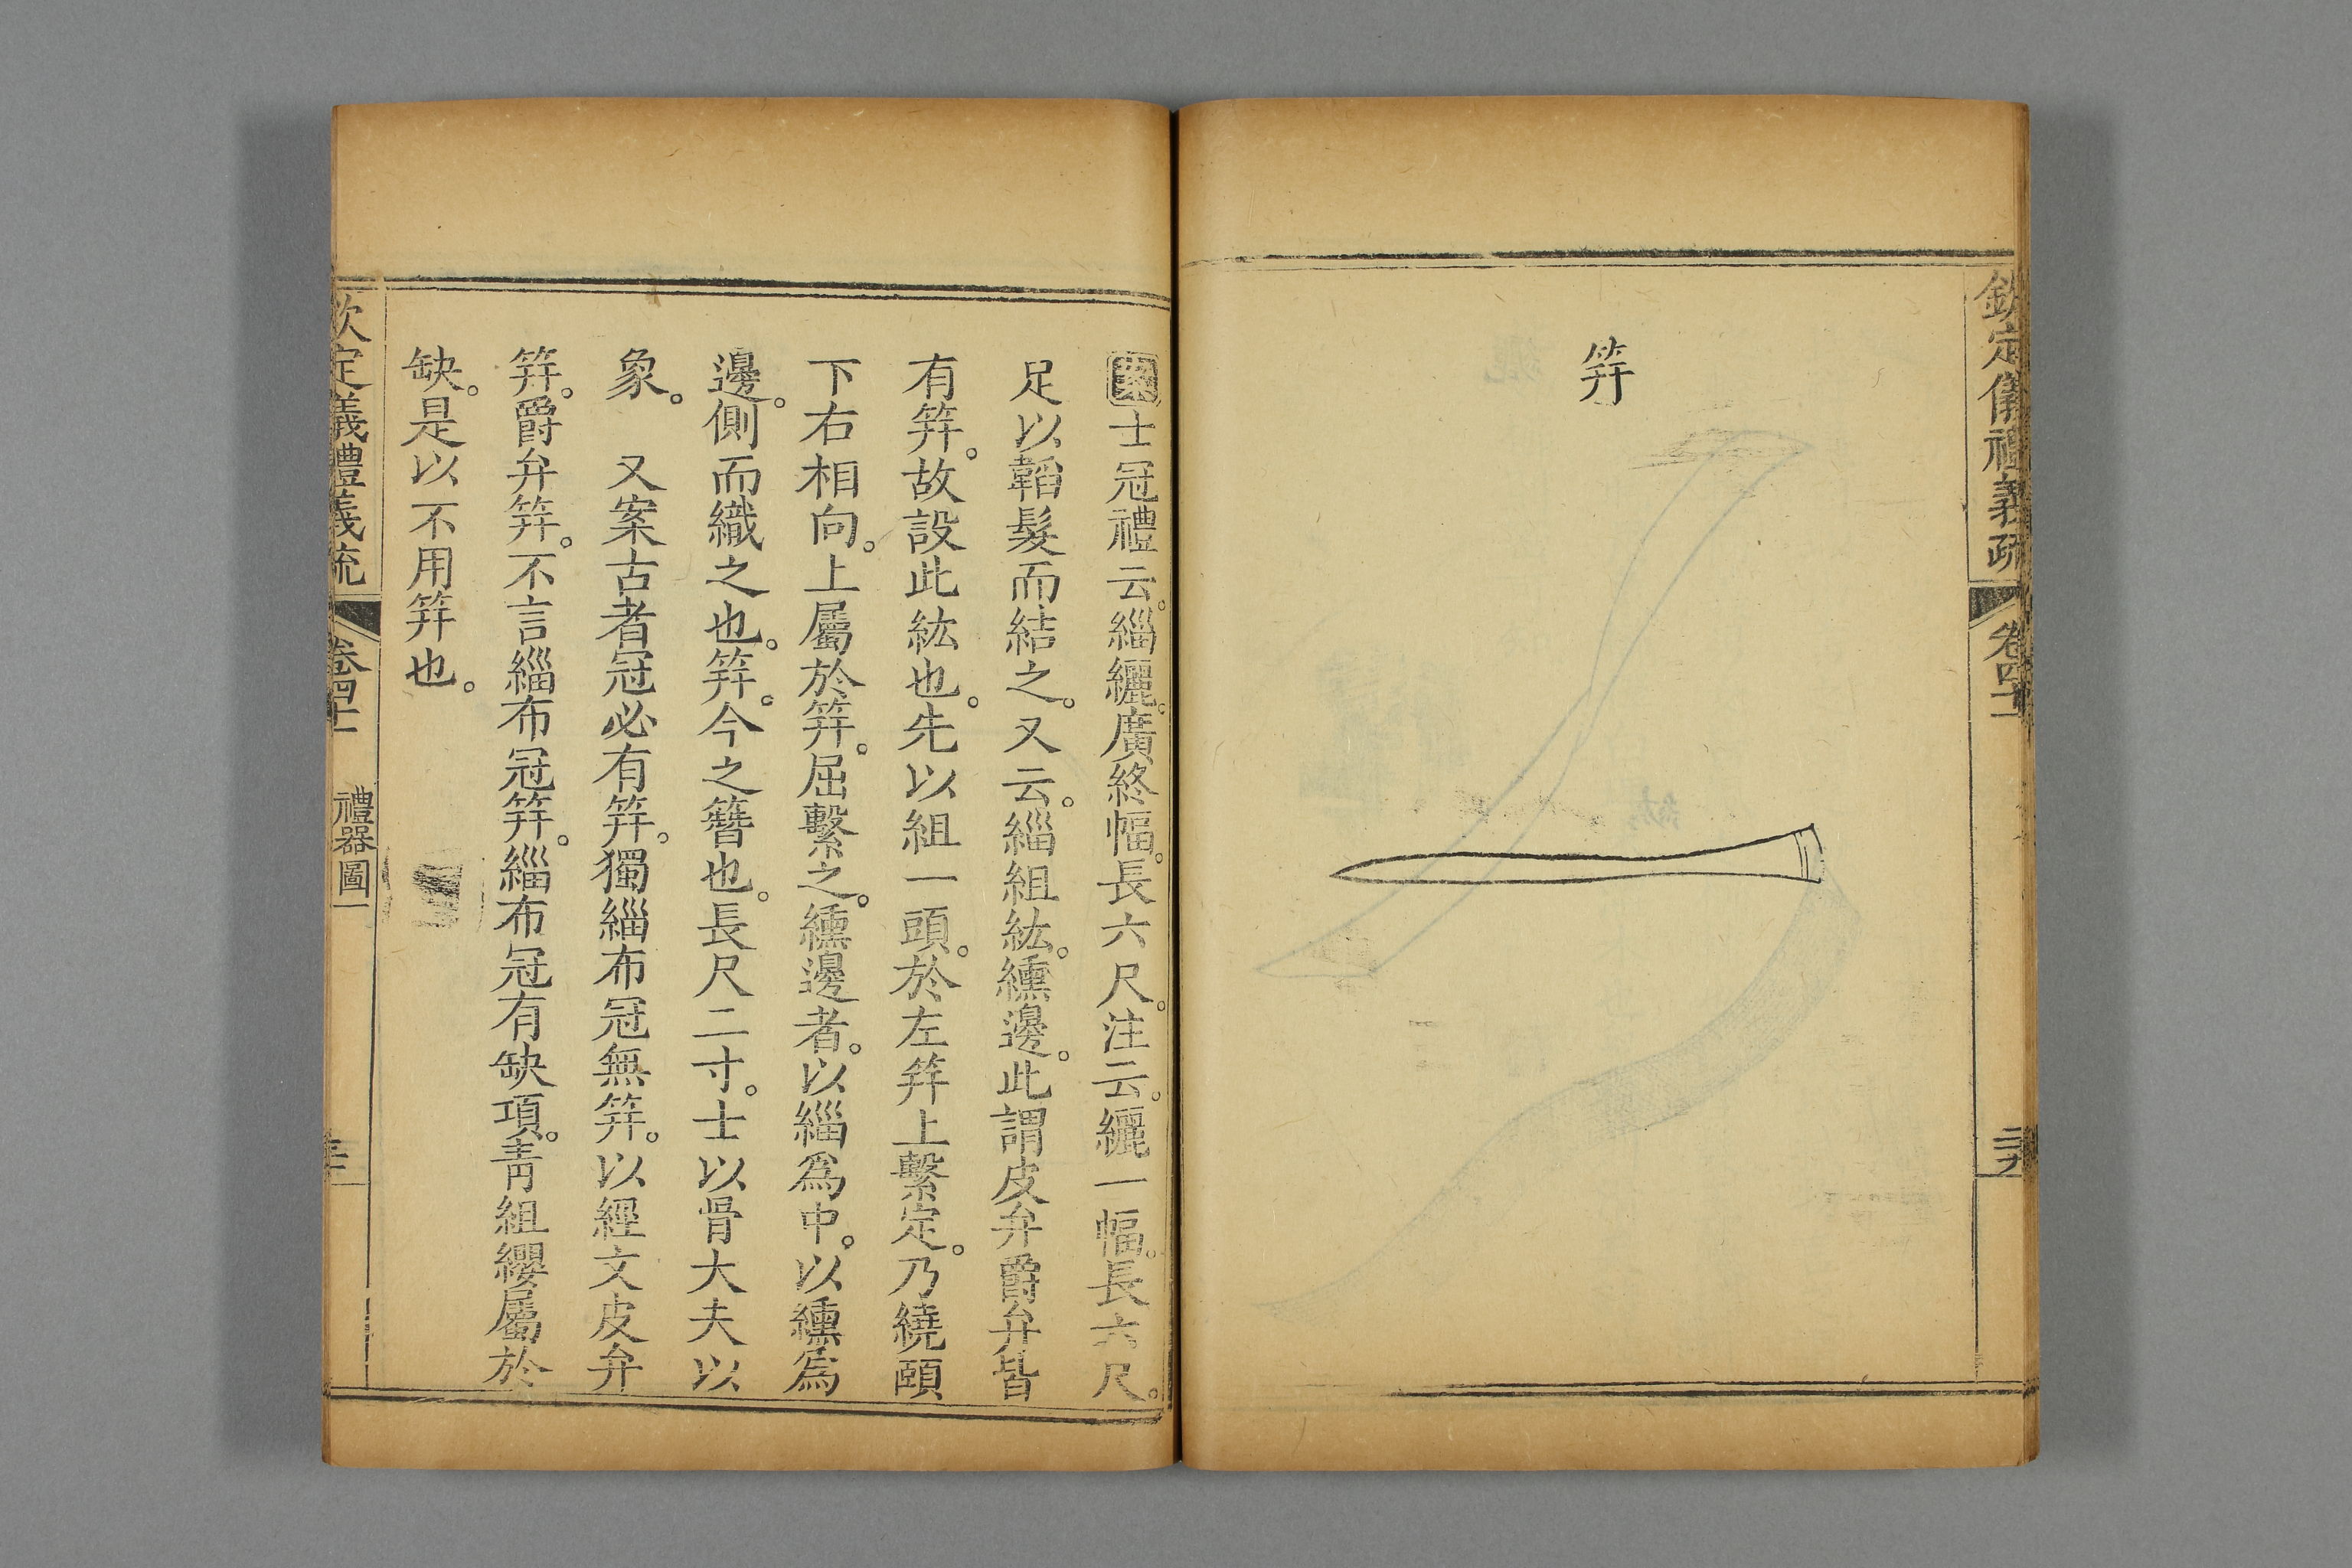 欽定儀禮義疏　卷四十一　二十九
笄
案士冠禮云。緇纚。廣終幅。長六尺。注云。纚一幅。長六尺。
足以韜髮而結之。又云。緇組紘。纁邊。此謂皮弁爵弁皆
有笄。故設此紘也。先以組一頭。於左笄上繫定。乃繞頤
下右相向。上屬於笄。屈繫之。纁邊者。以緇爲中。以纁爲
邊。側而織之也。笄。今之簪也。長尺二寸。士以骨大夫以
象。　又案古者冠必有笄。獨緇布冠無笄。以經文皮弁
笄。爵弁笄。不言緇布冠笄。緇布冠有缺項。靑組纓屬於
缺。是以不用笄也。
欽定儀禮義疏　卷四十一　禮器圖一　三十